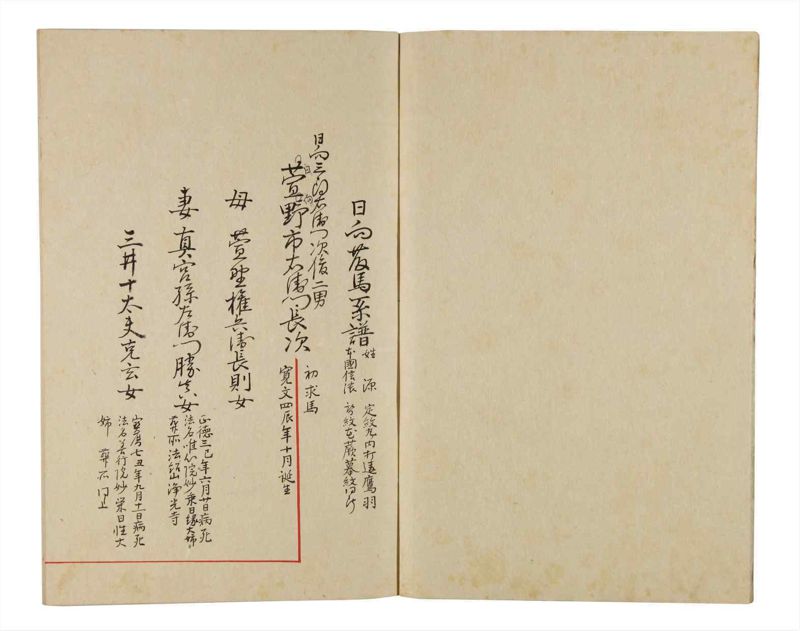 日向蔵馬系譜
姓 源 定紋丸内打違鷹羽
本國信濃 替紋花蕨幕紋同断
日向三郎右衛門次俊二男
萱野市右衛門長次
初求馬
寛文四辰年十月誕生
母 萱野権兵衛長則女
妻 真宮孫左衛門勝女
正徳三巳年六月廿日病死
法名唯心院妙乗日縁大姉
葬所法紹山浄光寺
三井十太夫克玄女
宝暦七丑年九月十一日病死
法名善行院妙栄日性大
姉 葬所同上